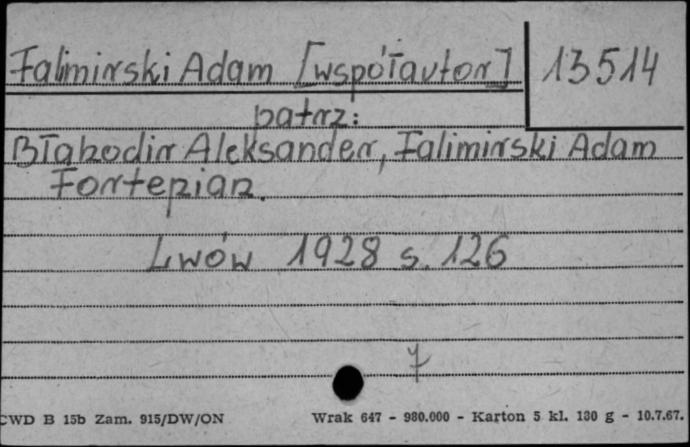 Falimirski Adam [współautor] 13514
patrz:
Błahodir Aleksander, Falimirski Adam
Fortepian.
Lwów 1928 s. 126
7
CWD B 15b Zam. 915/DW/ON Wrak 647 - 980.000 - Karton 5 kl. 130 g - 10.7.67.